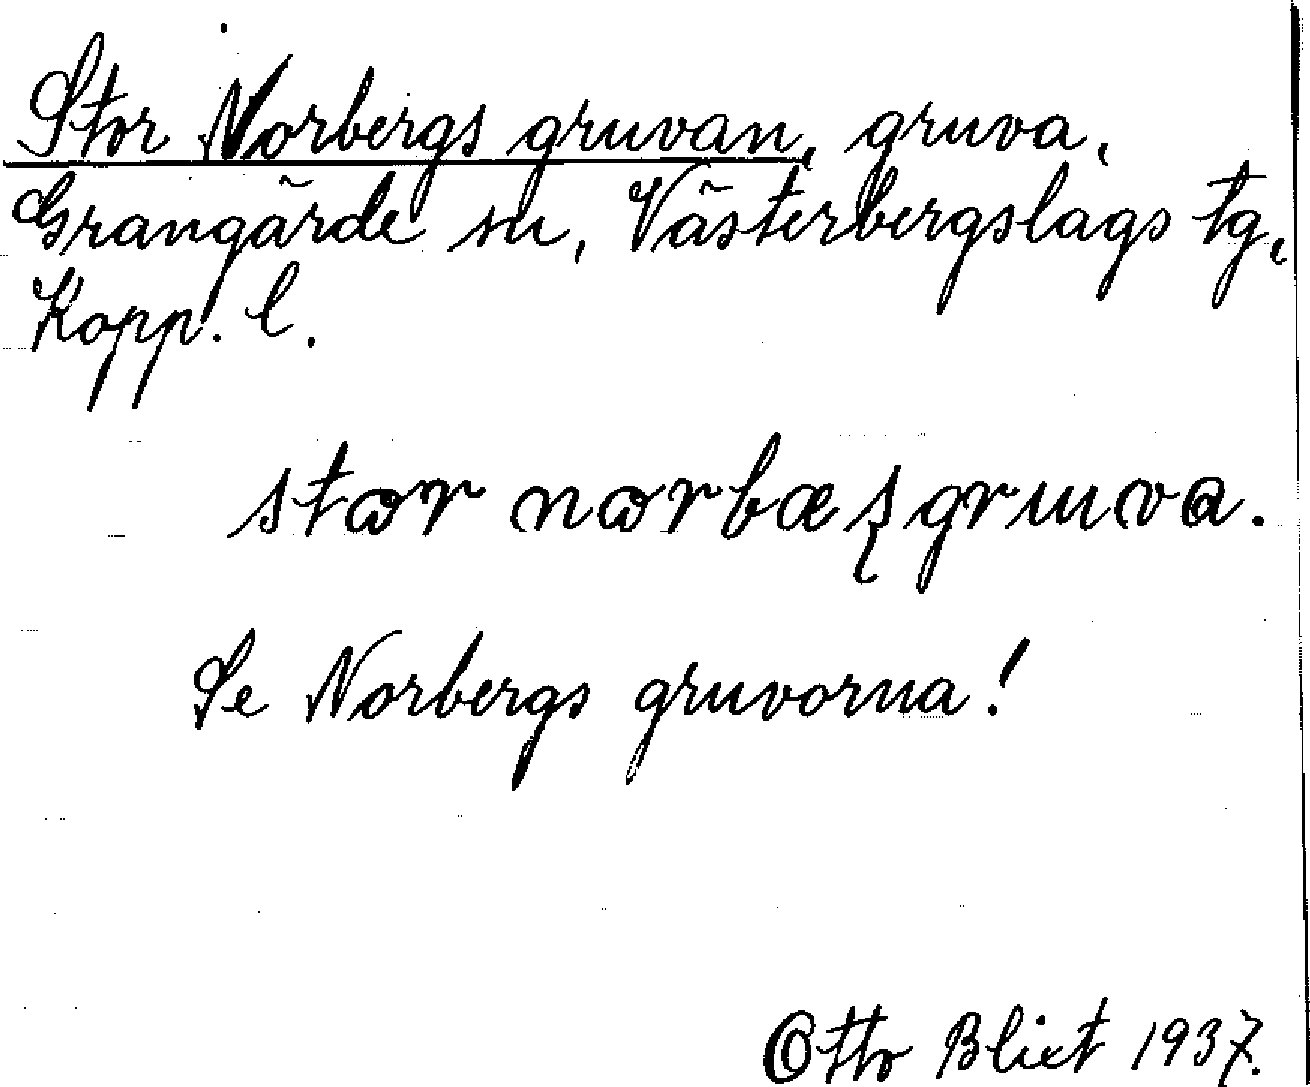 Stor Norbergs gruvan, gruva,
Grangärde sn, Västerbergslags tg,
Kopp. l.
Se Norbergs gruvorna!
Otto Blixt 1937.